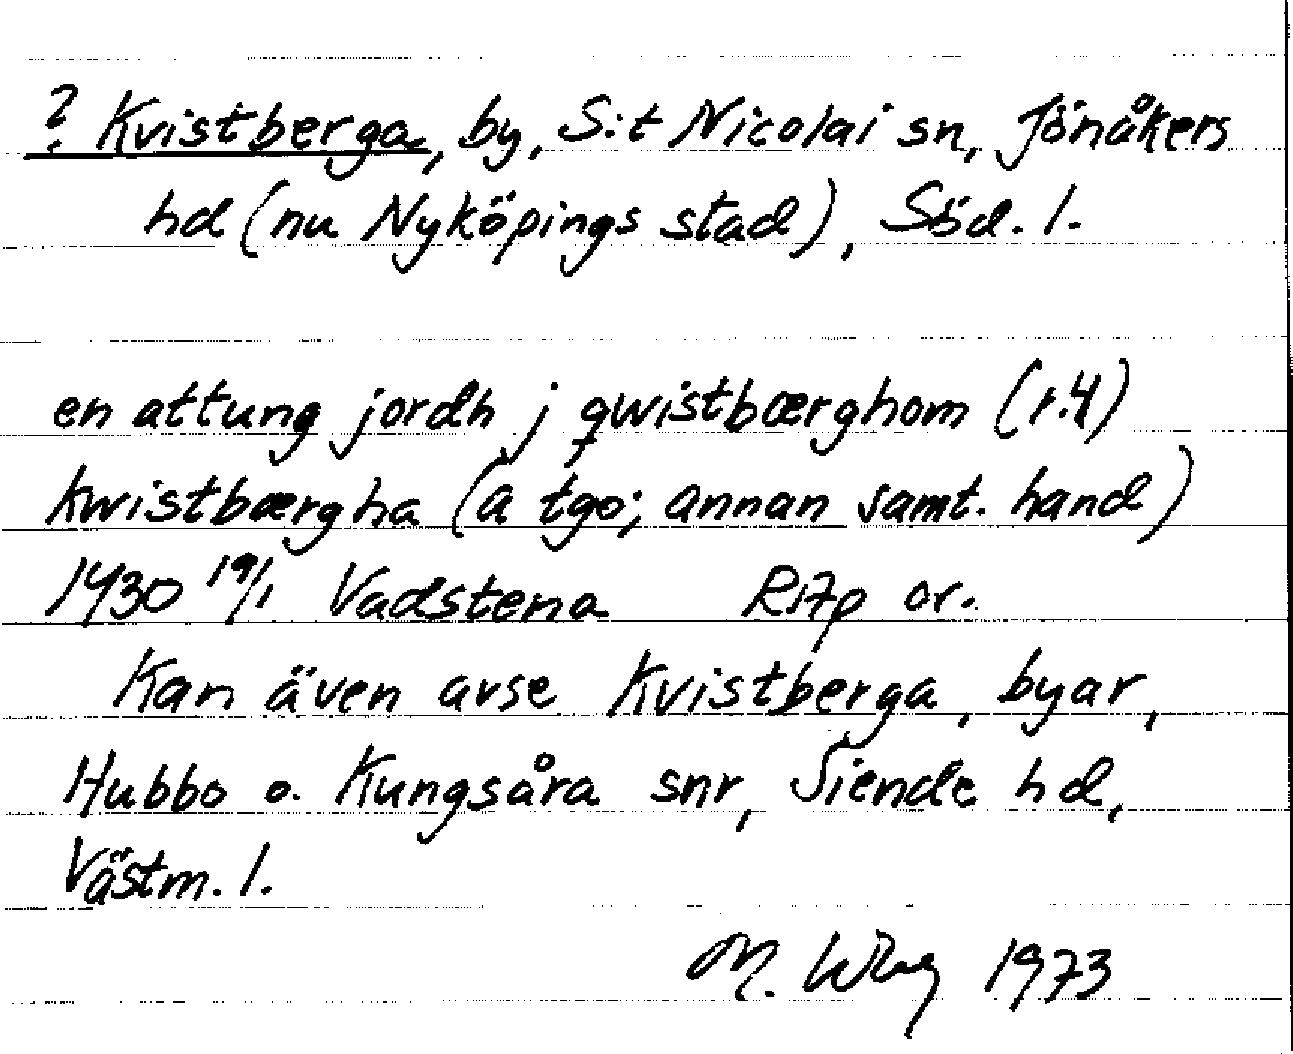 ? Kvistberga, by, S:t Nicolai sn, Jönåkers
hd (nu Nyköpings stad), Söd. l.
en attung jordh j qwistbærghom (r.4)
kwistbærgha (a tgo; annan samt. hand)
1430 19/1 Vadstena RAp or.
Kan även avse Kvistberga, byar,
Hubbo o. Kungsåra snr, Siende hd,
Västm. l.
M. Wbg 1973